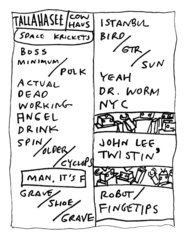 TALLAHASEE
COW
HAUS
SPACE KRICKETS
BOSS
MINIMUM/
POLK
ACTUAL
DEAD
WORKING
ANGEL
DRINK
SPIN/
OLDER/
CYCLOPS
MAN, IT'S F
GRAVE/
SHOE/
GRAVE
ISTANBUL
BIRD/
GTR/
SUN
YEAH
DR. WORM
NYC
JOHN LEE
TWISTIN'
ROBOT/
FINGETIPS